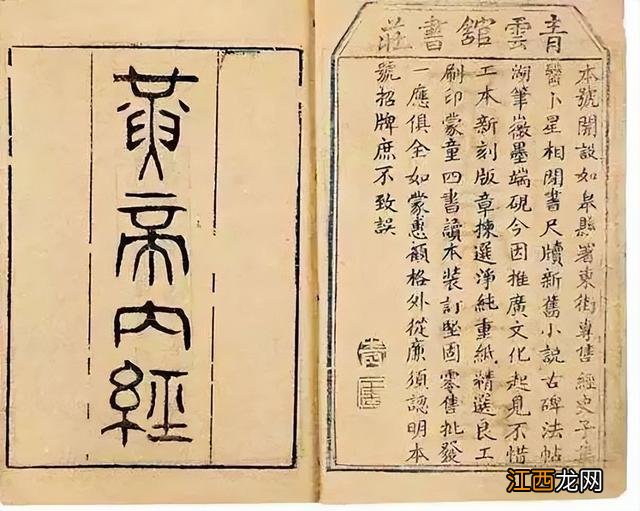 青雲舘書莊
本號開設如皋縣署東街專售經史子集
醫卜星相閒書尺牘新舊小說古碑法帖
湖筆徽墨端硯今因推廣文化起見不惜
工本新刻版章揀選淨純重紙精選良工
刷印蒙童四書讀本裝訂堅固零售批發
一應俱全如蒙惠顧格外從廉須認明本
號招牌庶不致誤
黃帝內經
江西龙网